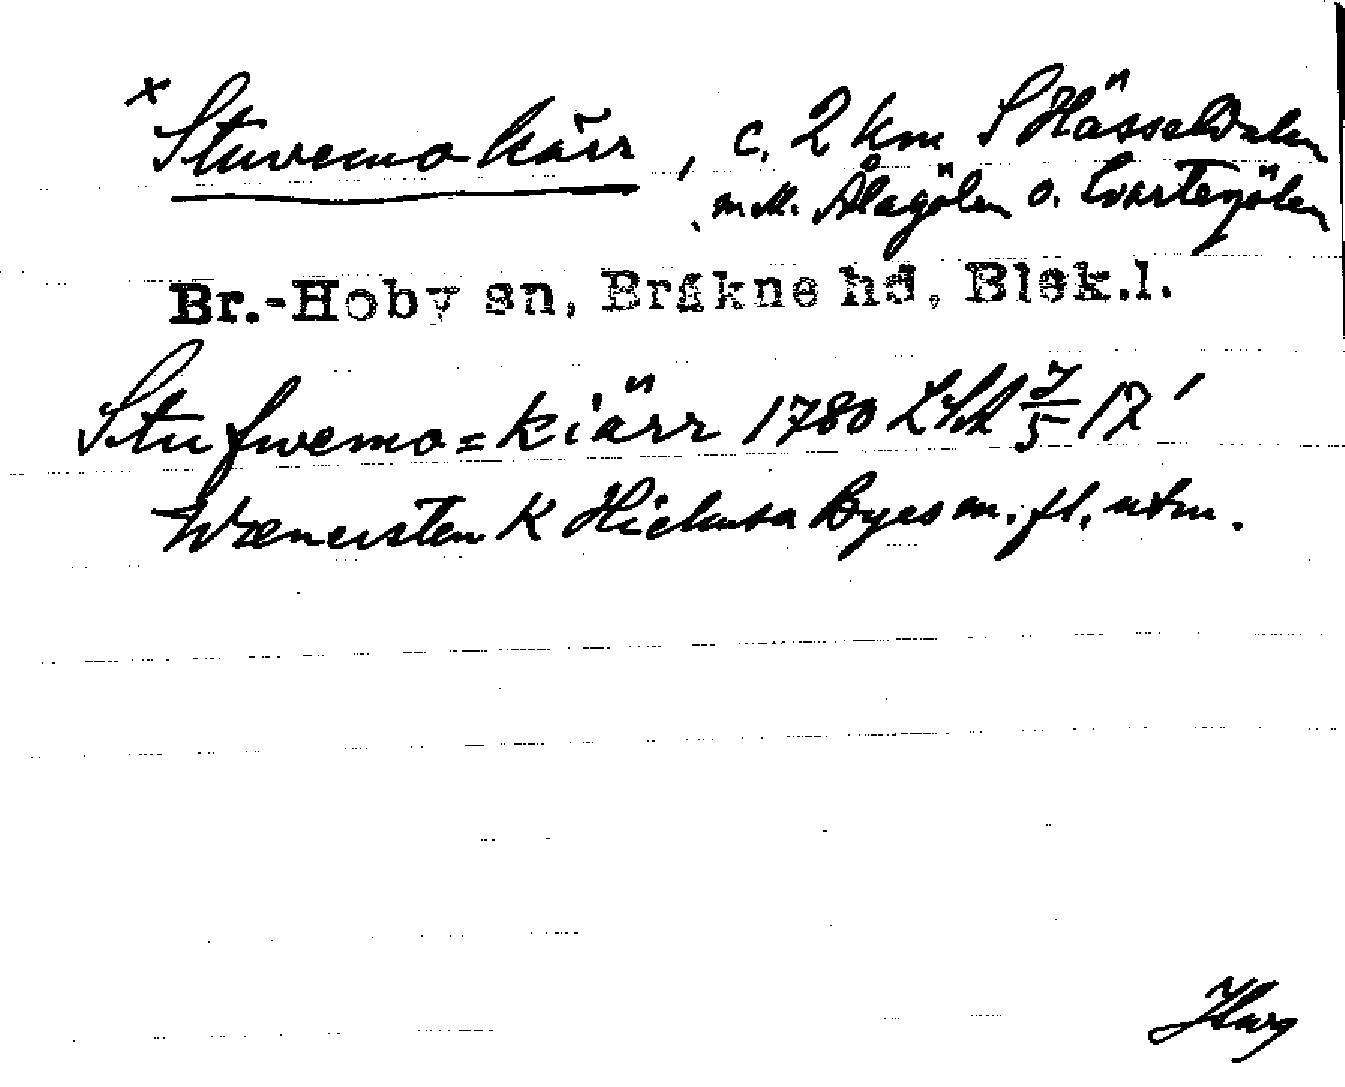 × Stuvemo kärr, c. 2 km S Hässeldalen
m.M. Ålagölen o. Svartegölen
Br.-Hoby sn, Bräkne hd, Blek.l.
Stufwemo=kiärr 1780 LSA 7/5 12'
K Byes m. fl. utm.